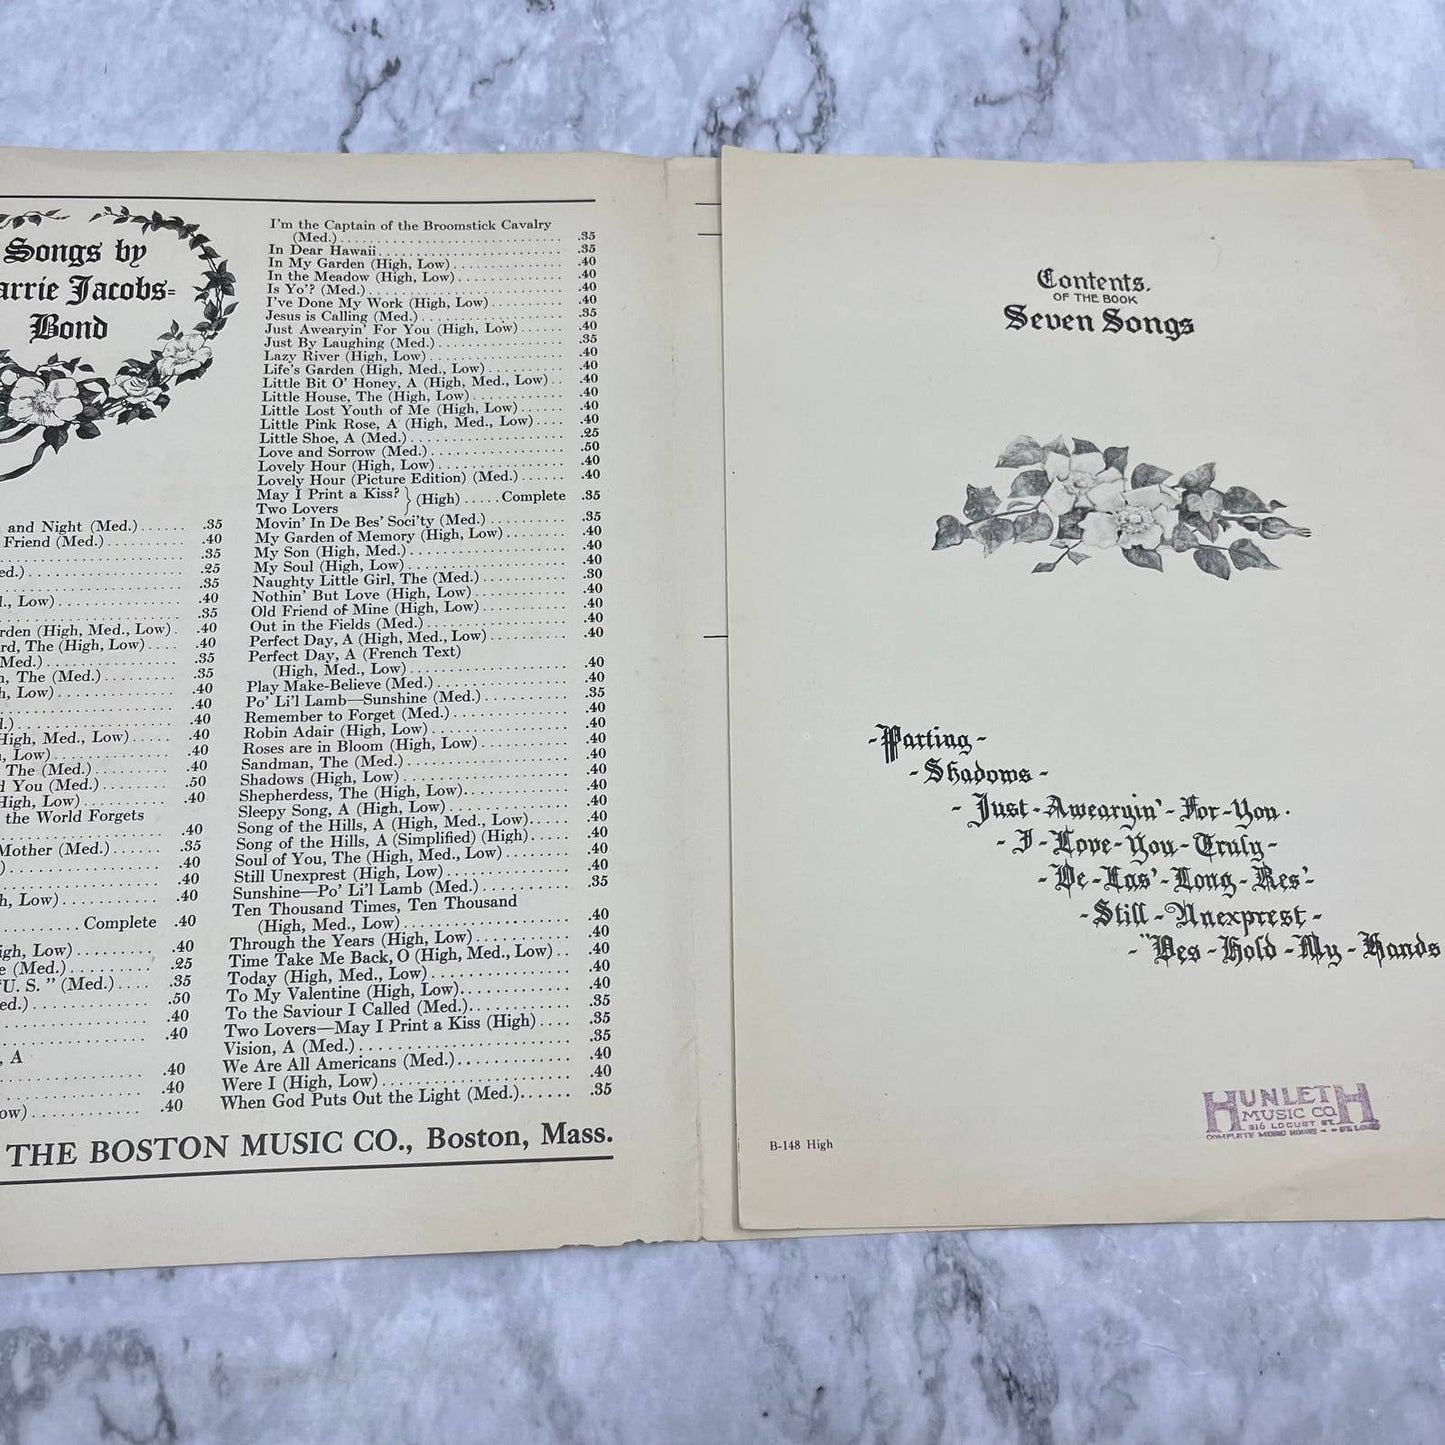 Songs by
arrie Jacobs=
Bond
and Night (Med.) ...... .35
Friend (Med.) .......... .40
.35
ed.) .................... .25
.35
., Low) ................ .40
.35
rden (High, Med., Low) . .40
rd, The (High, Low) .... .40
Med.) ................... .35
n, The (Med.) ........... .35
h, Low) ................. .40
.40
.) ...................... .40
High, Med., Low) ..... .40
, Low) .................. .40
The (Med.) .......... .40
d You (Med.) .......... .50
High, Low) .............. .40
the World Forgets
.40
Mother (Med.) ...... .35
) ....................... .40
.40
h, Low) ............ .40
Complete .40
igh, Low) ......... .40
e (Med.) .......... .25
"U. S." (Med.) .... .35
ed.) .................. .50
.40
.40
, A
.40
.40
ow) ............... .40
I'm the Captain of the Broomstick Cavalry
(Med.) .............. .35
In Dear Hawaii .............. .35
In My Garden (High, Low) .............. .40
In the Meadow (High, Low) .............. .40
Is Yo'? (Med.) .............. .40
I've Done My Work (High, Low) .......... .40
Jesus is Calling (Med.) .............. .35
Just Awearyin' For You (High, Low) ...... .40
Just By Laughing (Med.) .............. .35
Lazy River (High, Low) .............. .40
Life's Garden (High, Med., Low) .......... .40
Little Bit O' Honey, A (High, Med., Low) .. .40
Little House, The (High, Low) .......... .40
Little Lost Youth of Me (High, Low) ...... .40
Little Pink Rose, A (High, Med., Low) .... .40
Little Shoe, A (Med.) .............. .25
Love and Sorrow (Med.) .............. .50
Lovely Hour (High, Low) .............. .40
Lovely Hour (Picture Edition) (Med.) ...... .40
May I Print a Kiss? } (High) ..... Complete .35
Two Lovers
Movin' In De Bes' Soci'ty (Med.) .......... .35
My Garden of Memory (High, Low) ...... .40
My Son (High, Med.) .............. .40
My Soul (High, Low) .............. .40
Naughty Little Girl, The (Med.) .......... .30
Nothin' But Love (High, Low) .......... .40
Old Friend of Mine (High, Low) .......... .40
Out in the Fields (Med.) .............. .40
Perfect Day, A (High, Med., Low) .......... .40
Perfect Day, A (French Text)
(High, Med., Low) .............. .40
Play Make-Believe (Med.) .............. .40
Po' Li'l Lamb—Sunshine (Med.) .......... .35
Remember to Forget (Med.) .............. .40
Robin Adair (High, Low) .............. .40
Roses are in Bloom (High, Low) .......... .40
Sandman, The (Med.) .............. .40
Shadows (High, Low) .............. .40
Shepherdess, The (High, Low) .............. .40
Sleepy Song, A (High, Low) .............. .40
Song of the Hills, A (High, Med., Low) ..... .40
Song of the Hills, A (Simplified) (High) ..... .40
Soul of You, The (High, Med., Low) ........ .40
Still Unexprest (High, Low) .............. .40
Sunshine—Po' Li'l Lamb (Med.) .......... .35
Ten Thousand Times, Ten Thousand
(High, Med., Low) .............. .40
Through the Years (High, Low) .......... .40
Time Take Me Back, O (High, Med., Low) .. .40
Today (High, Med., Low) .............. .40
To My Valentine (High, Low) .............. .40
To the Saviour I Called (Med.) .............. .35
Two Lovers—May I Print a Kiss (High) .... .35
Vision, A (Med.) .............. .35
We Are All Americans (Med.) .............. .40
Were I (High, Low) .............. .40
When God Puts Out the Light (Med.) ...... .35
THE BOSTON MUSIC CO., Boston, Mass.
Contents.
OF THE BOOK
Seven Songs
-Parting-
-Shadows-
-Just-Awearyin'-For-You.
-I-Love-You-Truly-
-De-Las'-Long-Res'-
-Still-Unexprest-
-"Des-Hold-My-Hands
HUNLETH
MUSIC CO.
516 LOCUST ST.
COMPLETE MUSIC HOUSE - ST. LOUIS
B-148 High